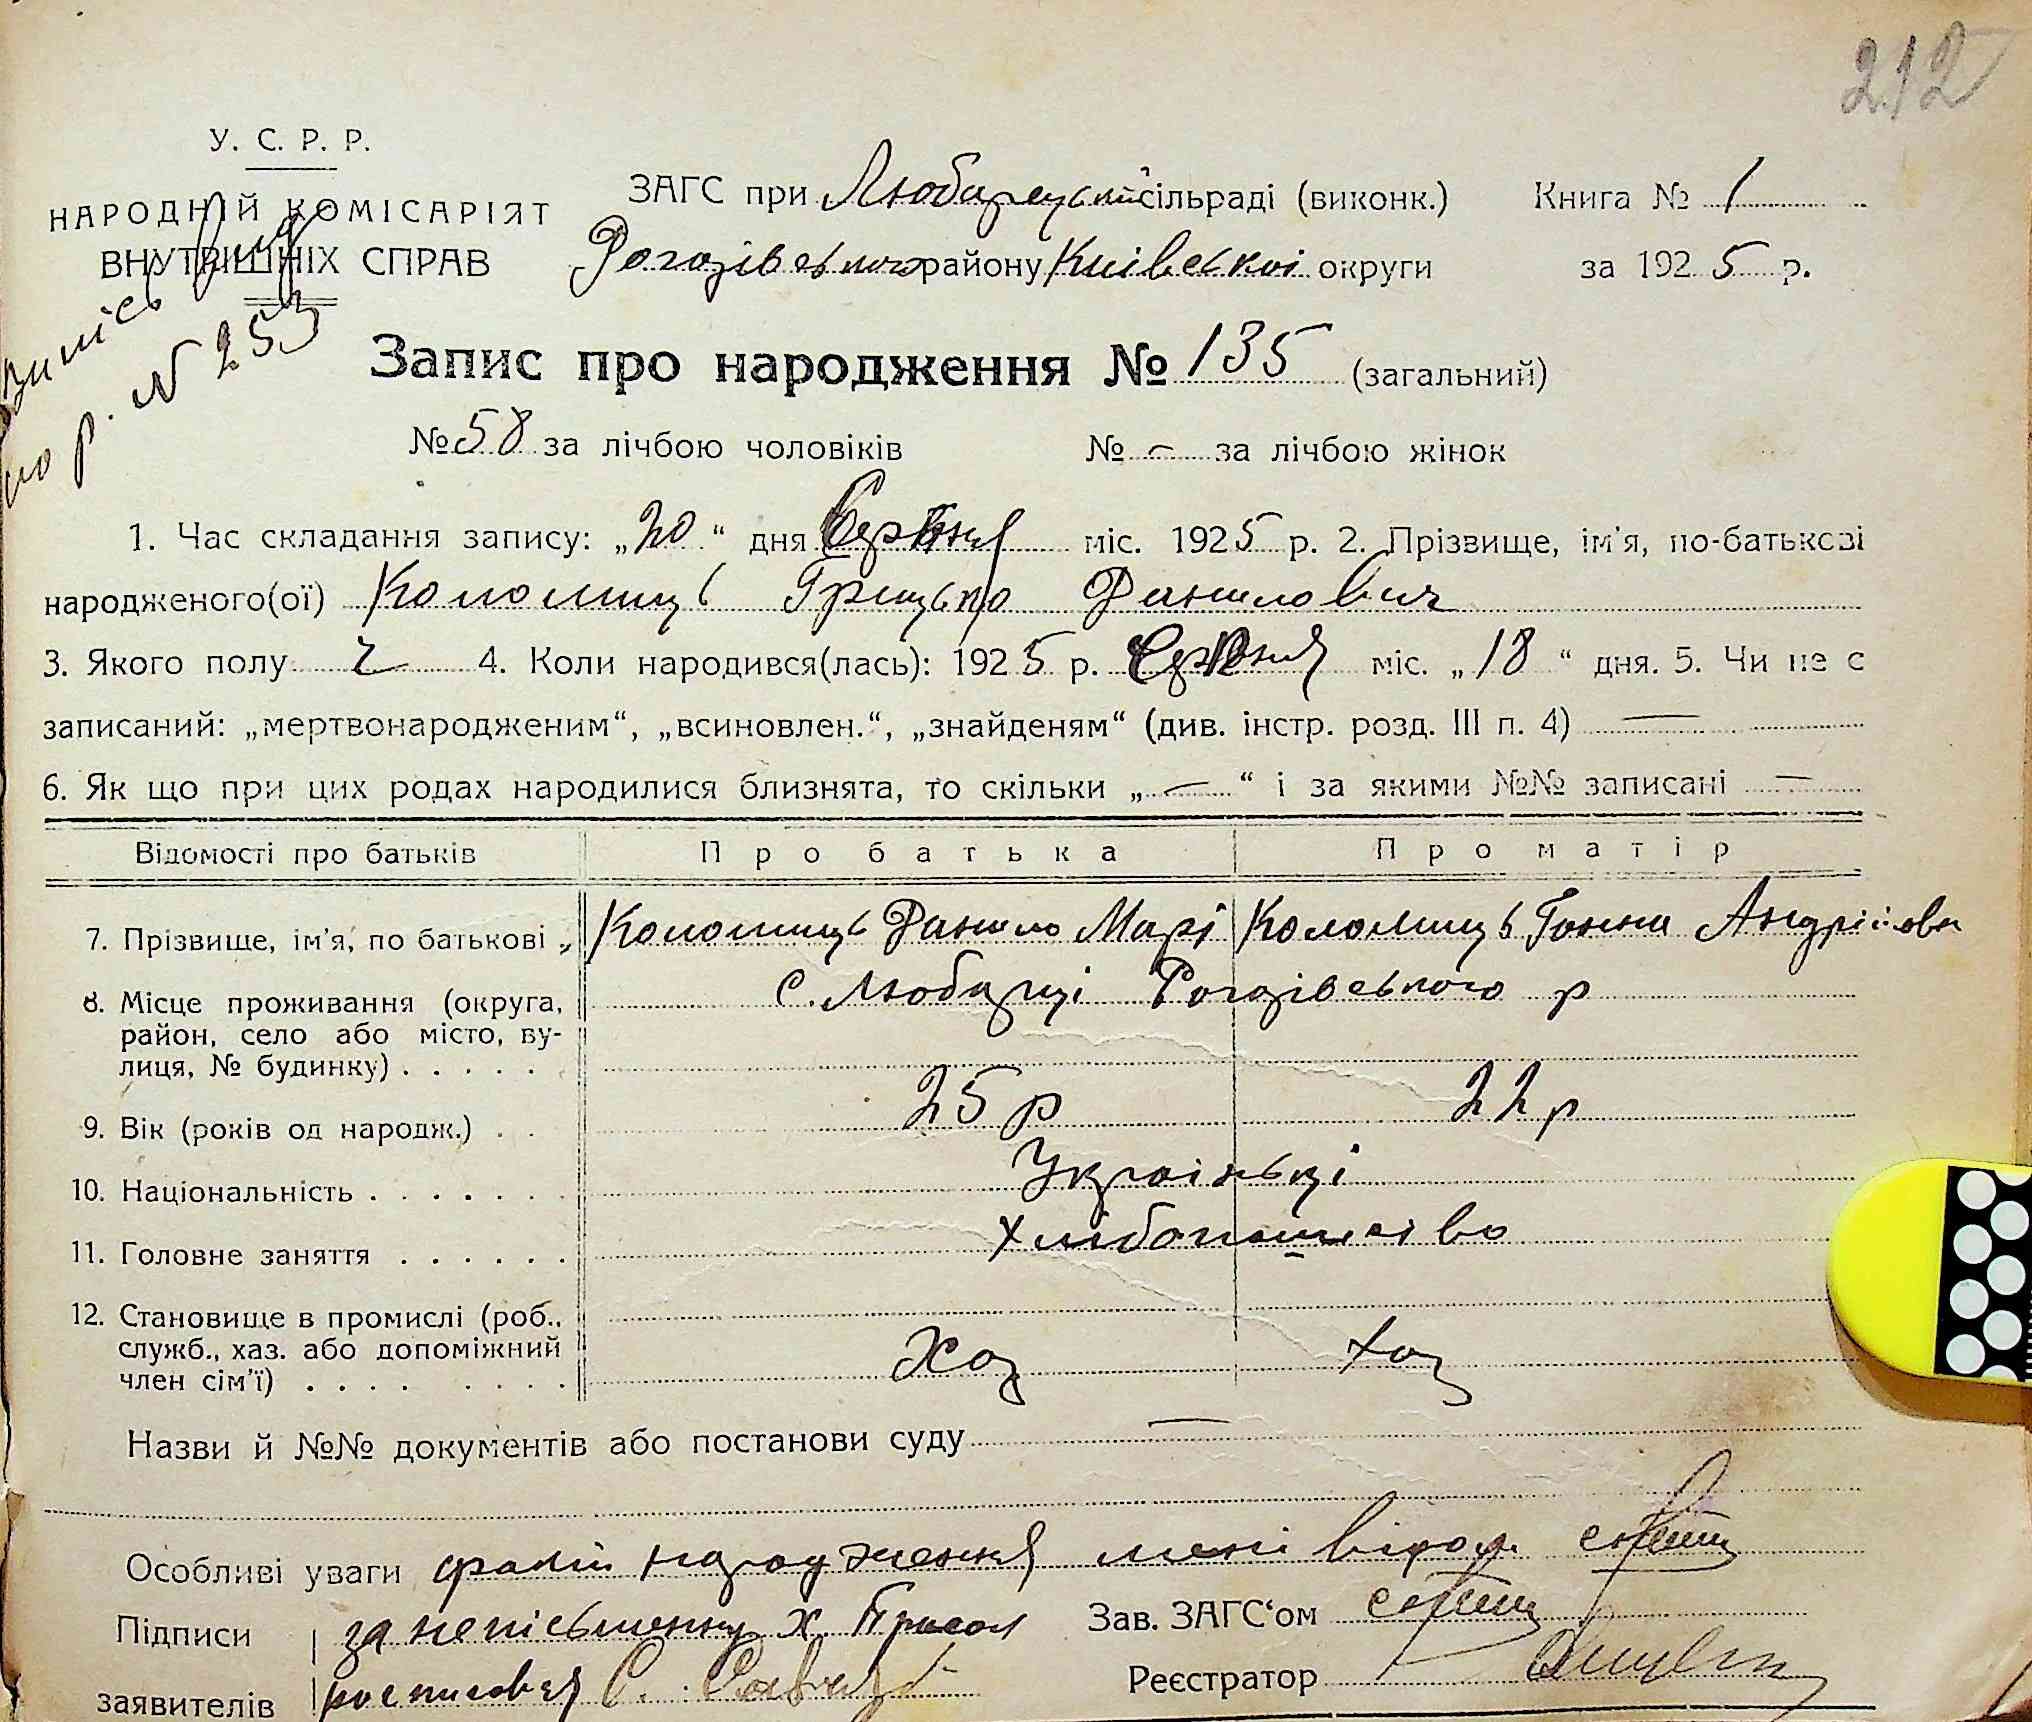 212
У. С. Р. Р.
НАРОДНІЙ КОМІСАРІЯТ
ВНУТРІШНІХ СПРАВ
Випись
по р. № 253
ЗАГС при Любарецькій сільраді (виконк.) Книга № 1
Рогозівського району Київської округи за 1925 р.
Запис про народження № 135 (загальний)
№ 58 за лічбою чоловіків № — за лічбою жінок
1. Час складання запису: „20“ дня Серпня міс. 1925 р. 2. Прізвище, ім'я, по-батькові
народженого(ої) Коломиць Грицько Данилович
3. Якого полу ч 4. Коли народився(лась): 1925 р. Серпня міс. „18“ дня. 5. Чи не є
записаний: „мертвонародженим“, „всиновлен.“, „знайденям“ (див. інстр. розд. III п. 4) —
6. Як що при цих родах народилися близнята, то скільки „—“ і за якими №№ записані —
Відомості про батьків Про батька Про матір
7. Прізвище, ім'я, по батькові „ Коломиць Данило Марк Коломиць Ганна Андріівна
8. Місце проживання (округа, с. Любарці Рогозівського р
район, село або місто, ву-
лиця, № будинку) . . . . .
9. Вік (років од народж.) . . 25 р 22 р
10. Національність . . . . . . . Українці
11. Головне заняття . . . . . . Хлібопашество
12. Становище в промислі (роб.,
служб., хаз. або допоміжний Хаз хаз
член сім'ї) . . . . . . . .
Назви й №№ документів або постанови суду —
Особливі уваги факт народження мені відом.
Підписи за неписьменну Х.
Зав. ЗАГС‘ом
заявителів росписався С.
Реєстратор